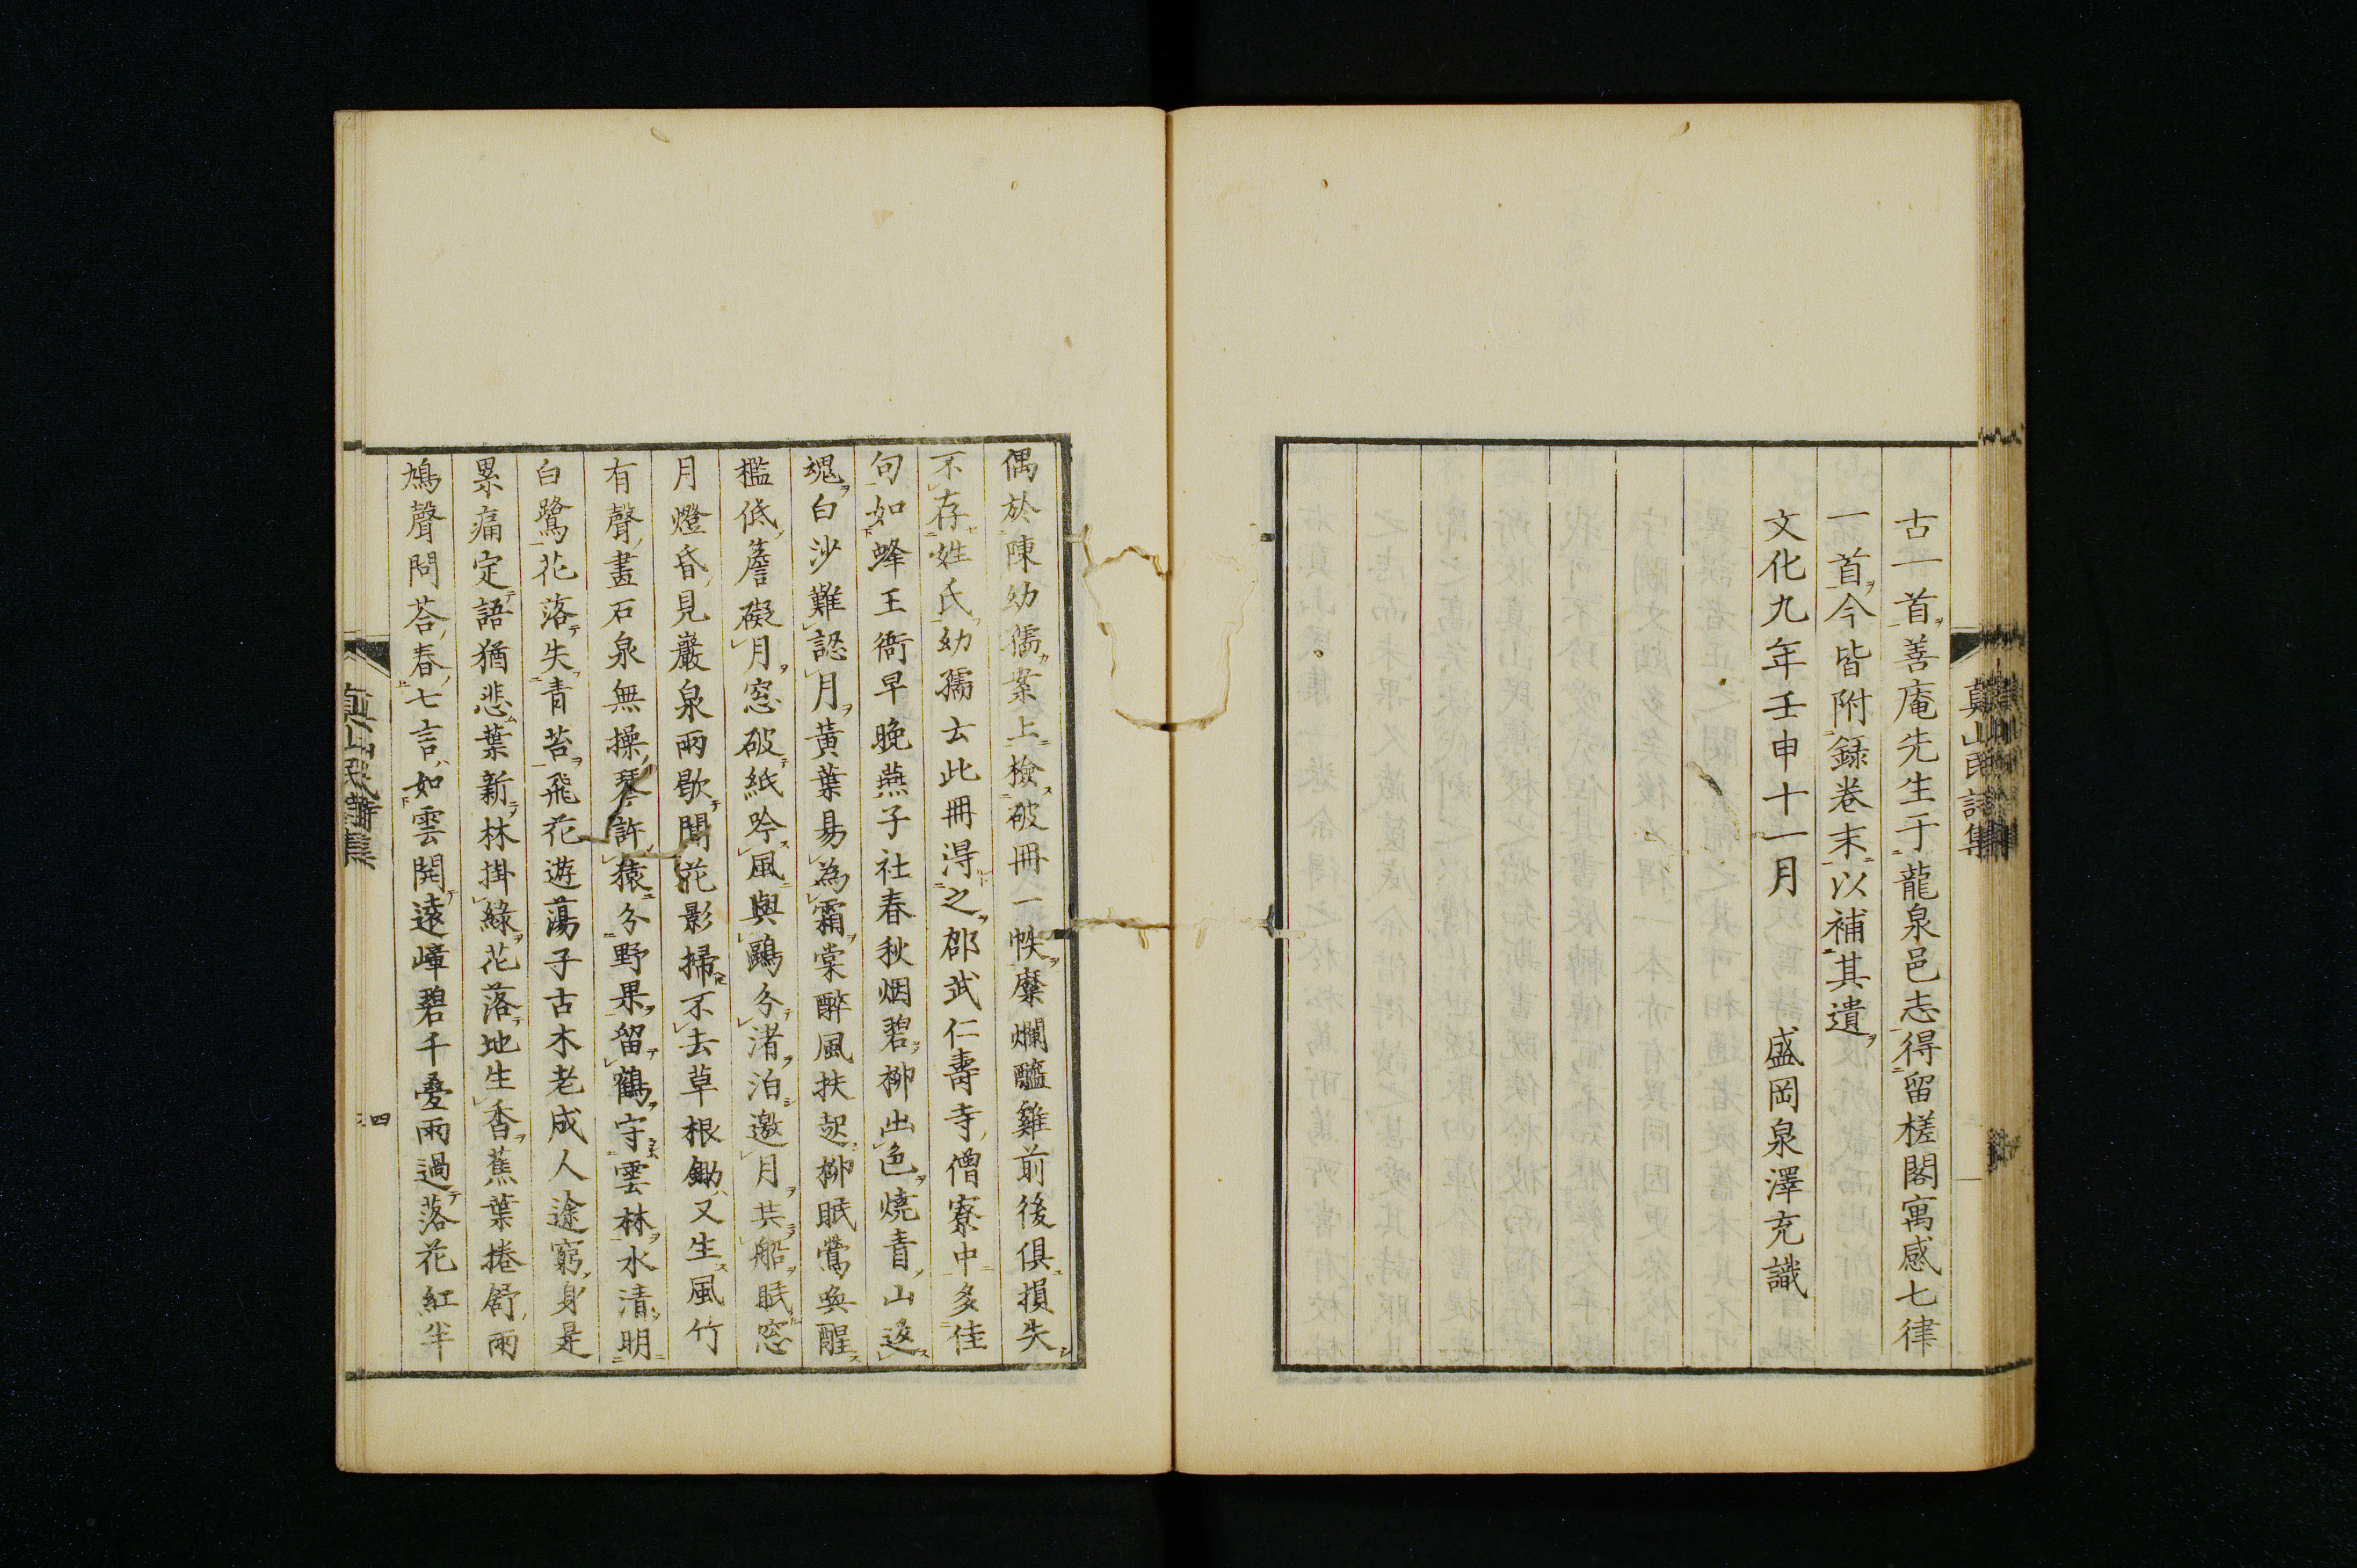 古一首善庵先生于龍泉邑志得留槎閣寓感七律
一首今皆附録卷末以補其遺
文化九年壬申十一月　盛岡泉澤充識
真山民詩集
偶於陳幼儒案上檢破冊一帙糜爛醯雞前後俱損失
不存姓氏幼孺云此冊淂之邵武仁壽寺僧寮中多佳
句如蜂王衙早晚燕子社春秋烟碧柳出色燒青山返
魂白沙難認月黃葉易為霜棠醉風扶起柳眠鶯喚醒
檻低簷礙月窓破紙吟風與鷗分渚泊邀月共船眠窓
月燈昏見巖泉雨歇聞花影掃不去草根鋤又生風竹
有聲畫石泉無操琴許猿分野果留鶴守雲林水清明
白鷺花落失青苔飛花遊蕩子古木老成人途窮身是
累痛定語猶悲葉新林掛綠花落地生香蕉葉捲舒雨
鳩聲問荅春七言如雲開遠嶂碧千疊雨過落花紅半
真山民詩集
四